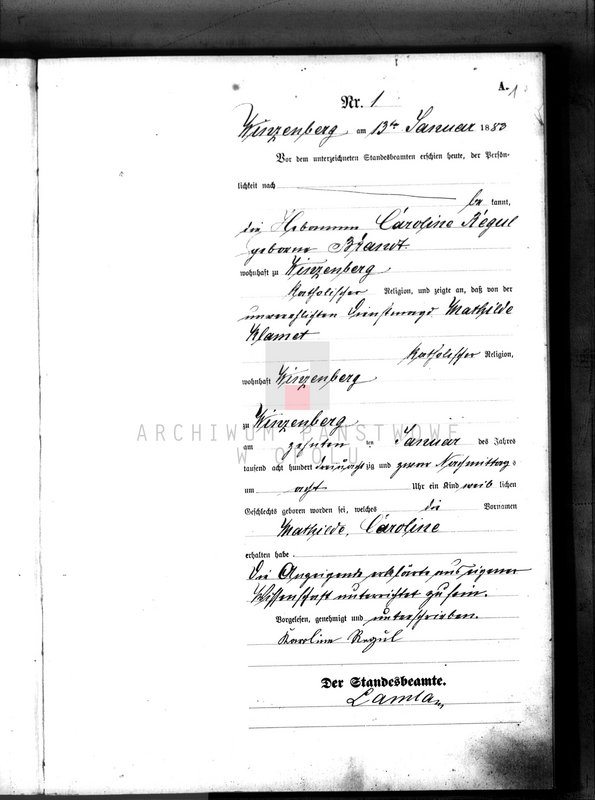 A. 1
Nr. 1
Winzenberg, am 13ten Januar 1883
Vor dem unterzeichneten Standesbeamten erschien heute, der Persön-
lichkeit nach
be kannt,
die Hebamme Caroline Regul
geborne Brandt
wohnhaft zu Winzenberg
katholischer Religion, und zeigte an, daß von der
unverehlichten Dienstmagd Mathilde
Klamet
katholischer Religion,
wohnhaft Winzenberg
zu Winzenberg
ARCHIWUM PAŃSTWOWE
am zehnten ten Januar des Jahres
W OPOLU
tausend acht hundert dreiundacht zig und zwar Nachmittag s
um acht Uhr ein Kind weib lichen
Geschlechts geboren worden sei, welches die Vornamen
Mathilde, Caroline
erhalten habe.
Die Anzeigende erklärte aus eigener
Wissenschaft unterrichtet zu sein.
Vorgelesen, genehmigt und unterschrieben.
Karoline Regul
Der Standesbeamte.